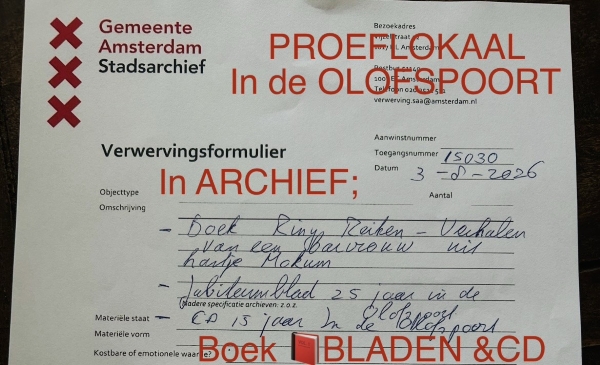 Gemeente
Amsterdam
Stadsarchief
Bezoekadres
PROEFLOKAAL
In de OLOFSPOORT
verwerving.saa@amsterdam.nl
Aanwinstnummer
Verwervingsformulier
Toegangsnummer 15030
Datum 3-8-2026
In ARCHIEF;
Objecttype
Aantal
Omschrijving
- Boek Riny Reiken - Verhalen
van een barvrouw uit
hartje Mokum
- Jubileumblad 25 jaar in de
Olofspoort
Nadere specificatie archieven: z.o.z.
Materiële staat - CD 15 jaar In de Olofspoort
Materiële vorm
Kostbare of emotionele waarde?
Boek 📕BLADEN &CD